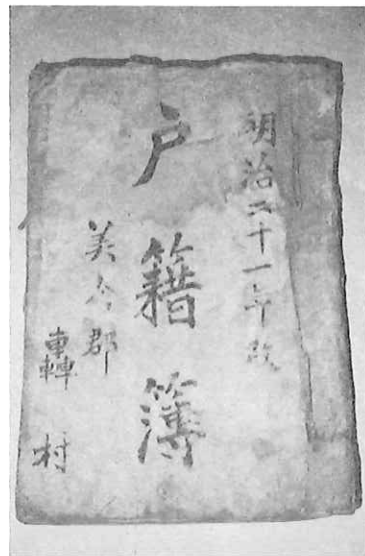 明治二十一年改
戸籍簿
美含郡
轟村